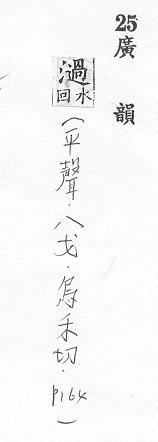 25 廣韻
濄 水回 (平聲.八戈.烏禾切.p164)